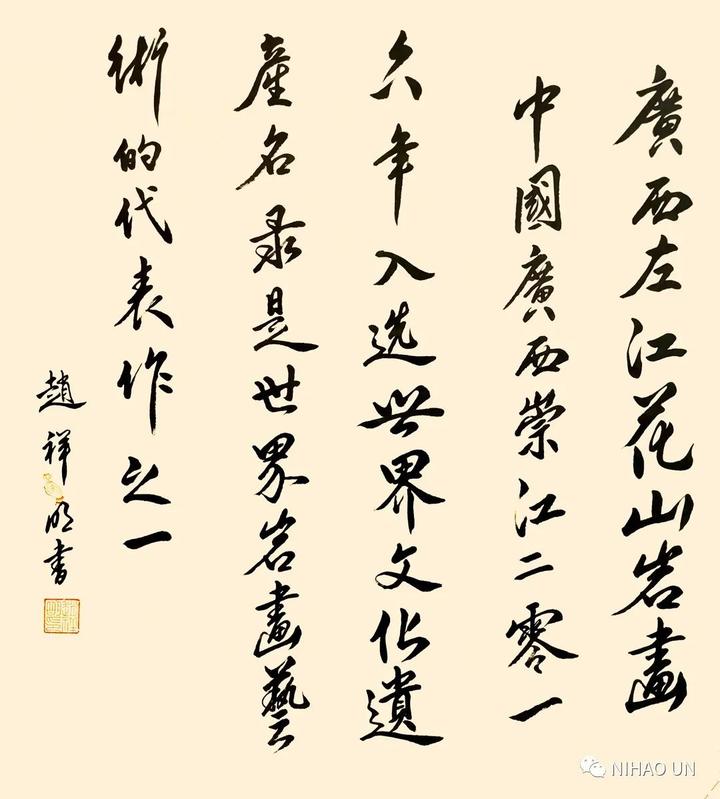 廣西左江花山岩畫
中國廣西崇江二零一
六年入选世界文化遺
產名录是世界岩畫藝
術的代表作之一
趙祥明書
NIHAO UN